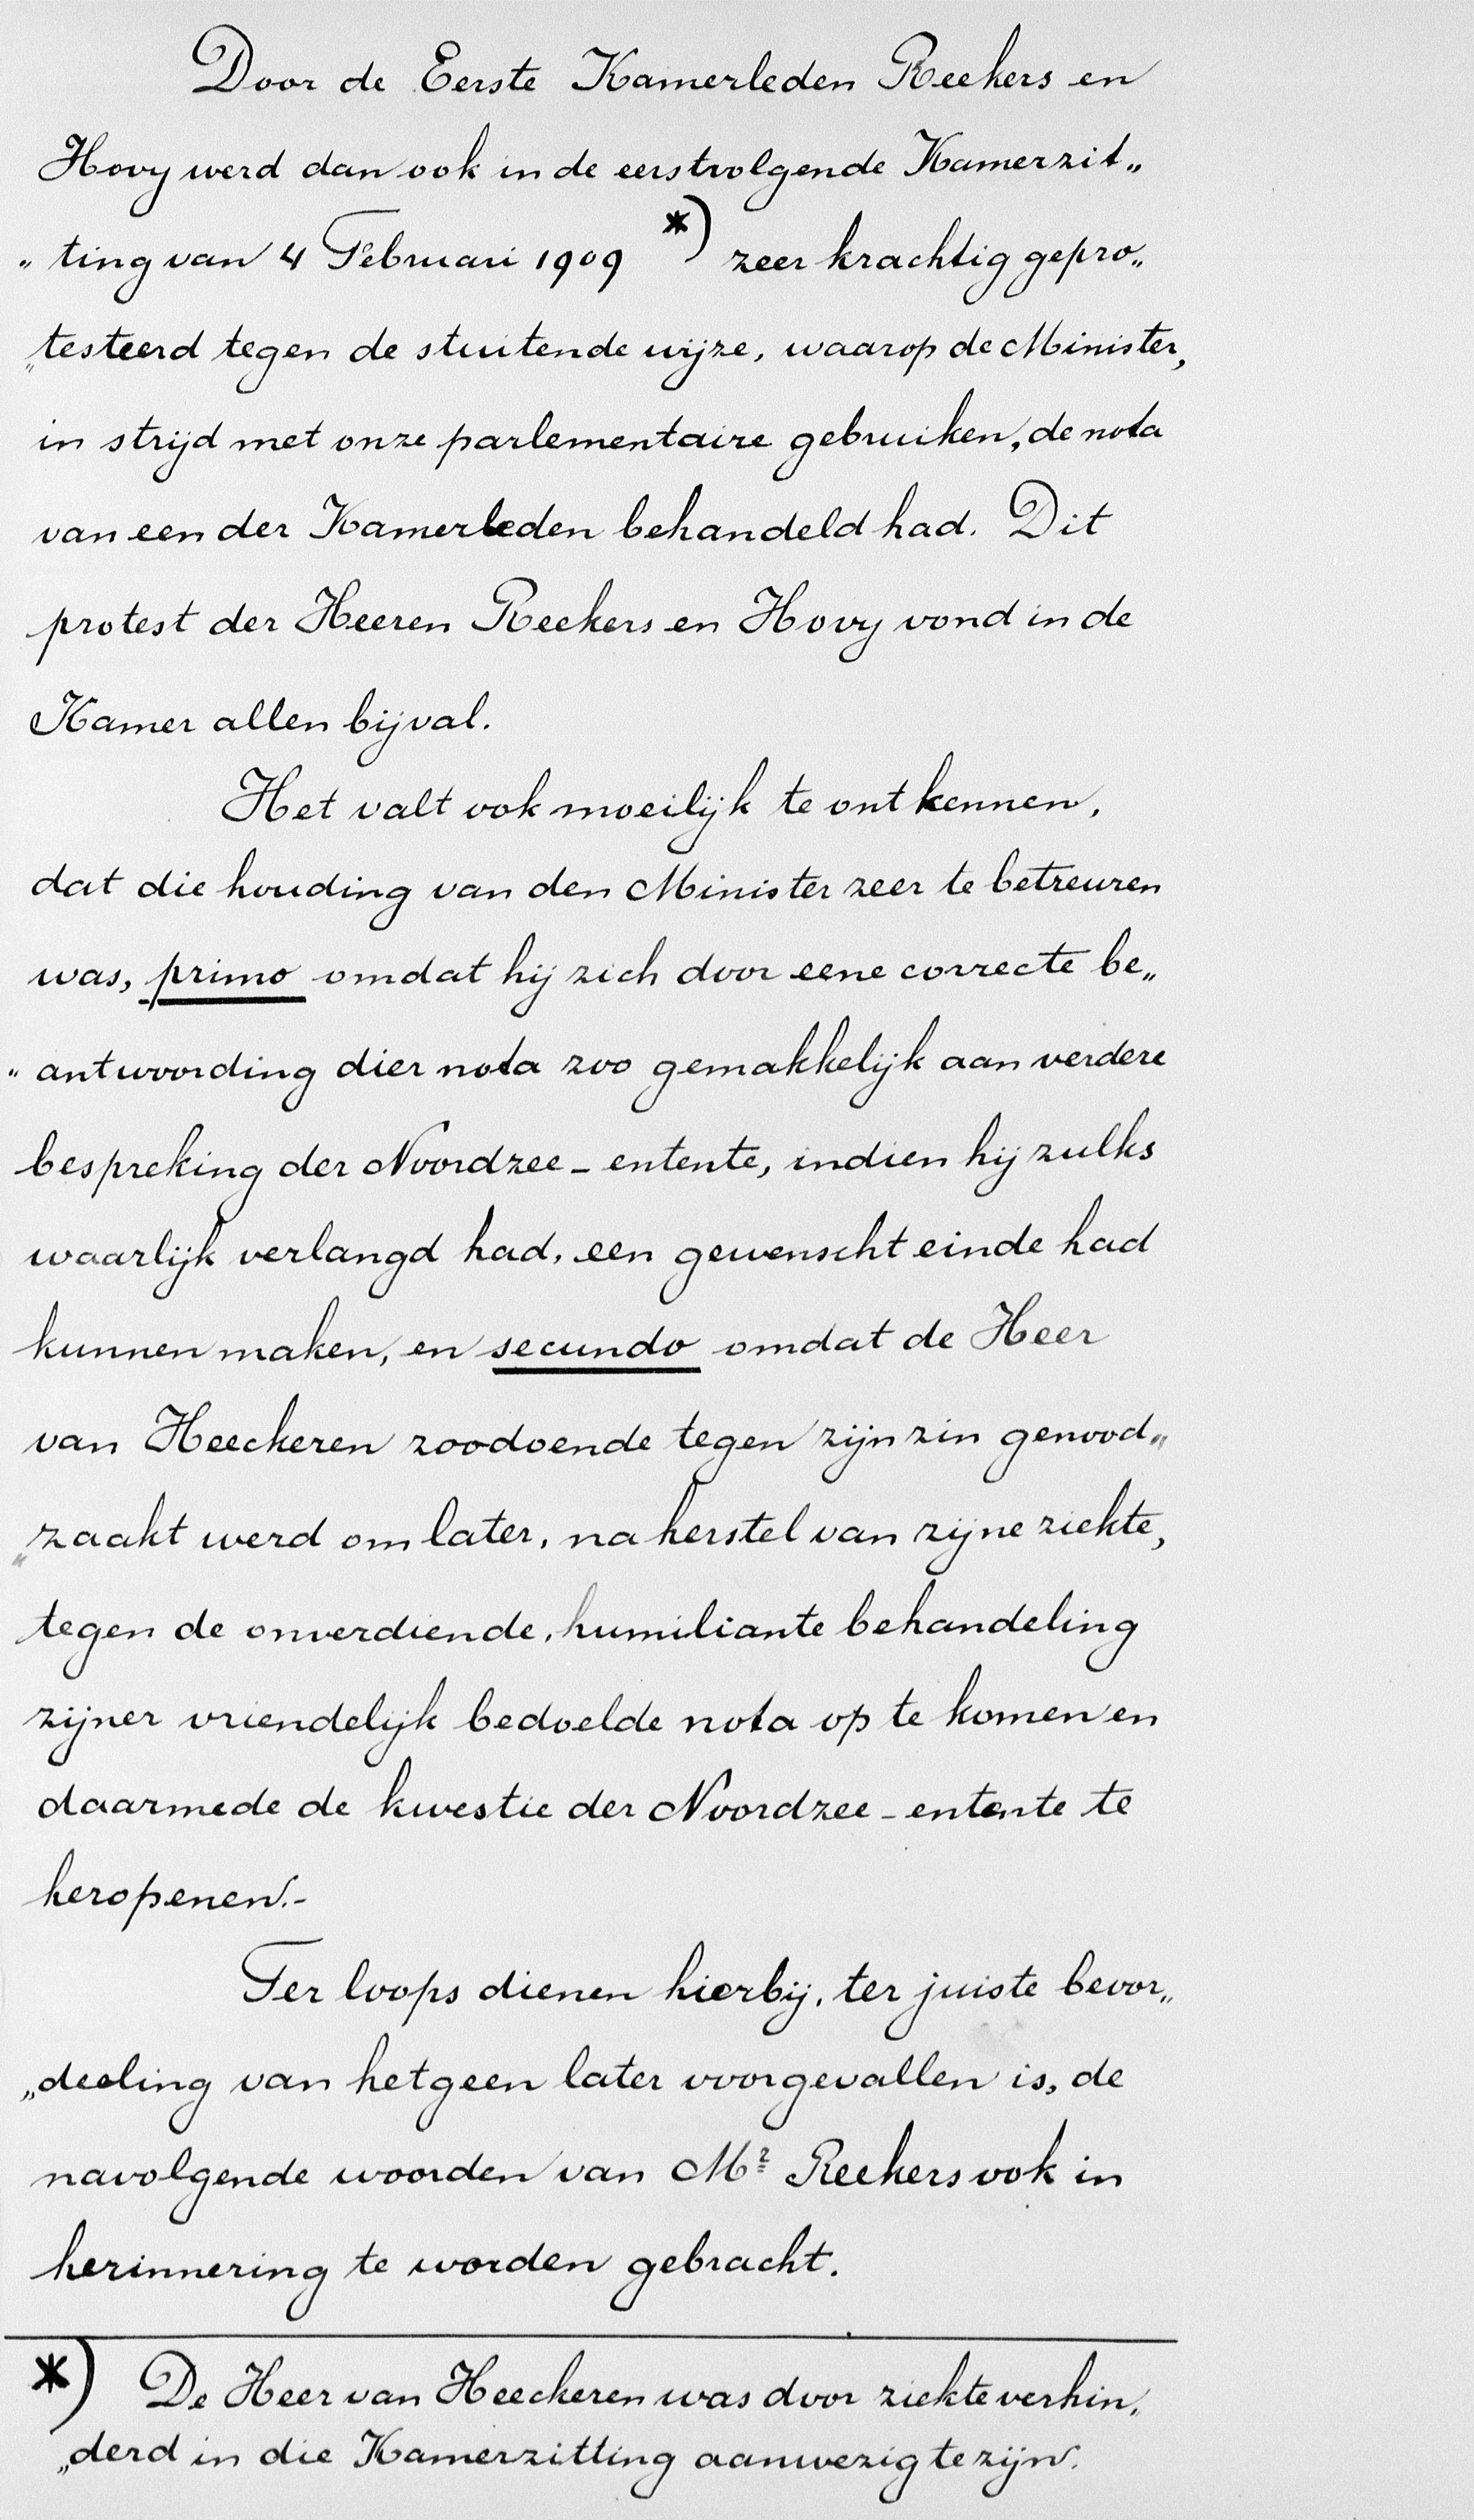 Door de Eerste Kamerleden Reekers en
Hovy werd dan ook in de eerstvolgende Kamerzit„
„ting van 4 Februari 1909 *) zeer krachtig gepro„
„testeerd tegen de stuitende wijze, waarop de Minister,
in strijd met onze parlementaire gebruiken, de nota
van een der Kamerleden behandeld had. Dit
protest der Heeren Reekers en Hovy vond in de
Kamer allen bijval.
Het valt ook moeilijk te ontkennen,
dat die houding van den Minister zeer te betreuren
was, primo omdat hij zich door eene correcte be„
„antwoording dier nota zoo gemakkelijk aan verdere
bespreking der Noordzee-entente, indien hij zulks
waarlijk verlangd had, een gewenscht einde had
kunnen maken, en secundo omdat de Heer
van Heeckeren zoodoende tegen zijn zin genood„
„zaakt werd om later, na herstel van zijne ziekte,
tegen de onverdiende, humiliante behandeling
zijner vriendelijk bedoelde nota op te komen en
daarmede de kwestie der Noordzee-entente te
heropenen.-
Ter loops dienen hierbij, ter juiste bevor„
„deeling van hetgeen later voorgevallen is, de
navolgende woorden van Mr Reekers ook in
herinnering te worden gebracht.
*) De Heer van Heeckeren was door ziekte verhin„
„derd in die Kamerzitting aanwezig te zijn.